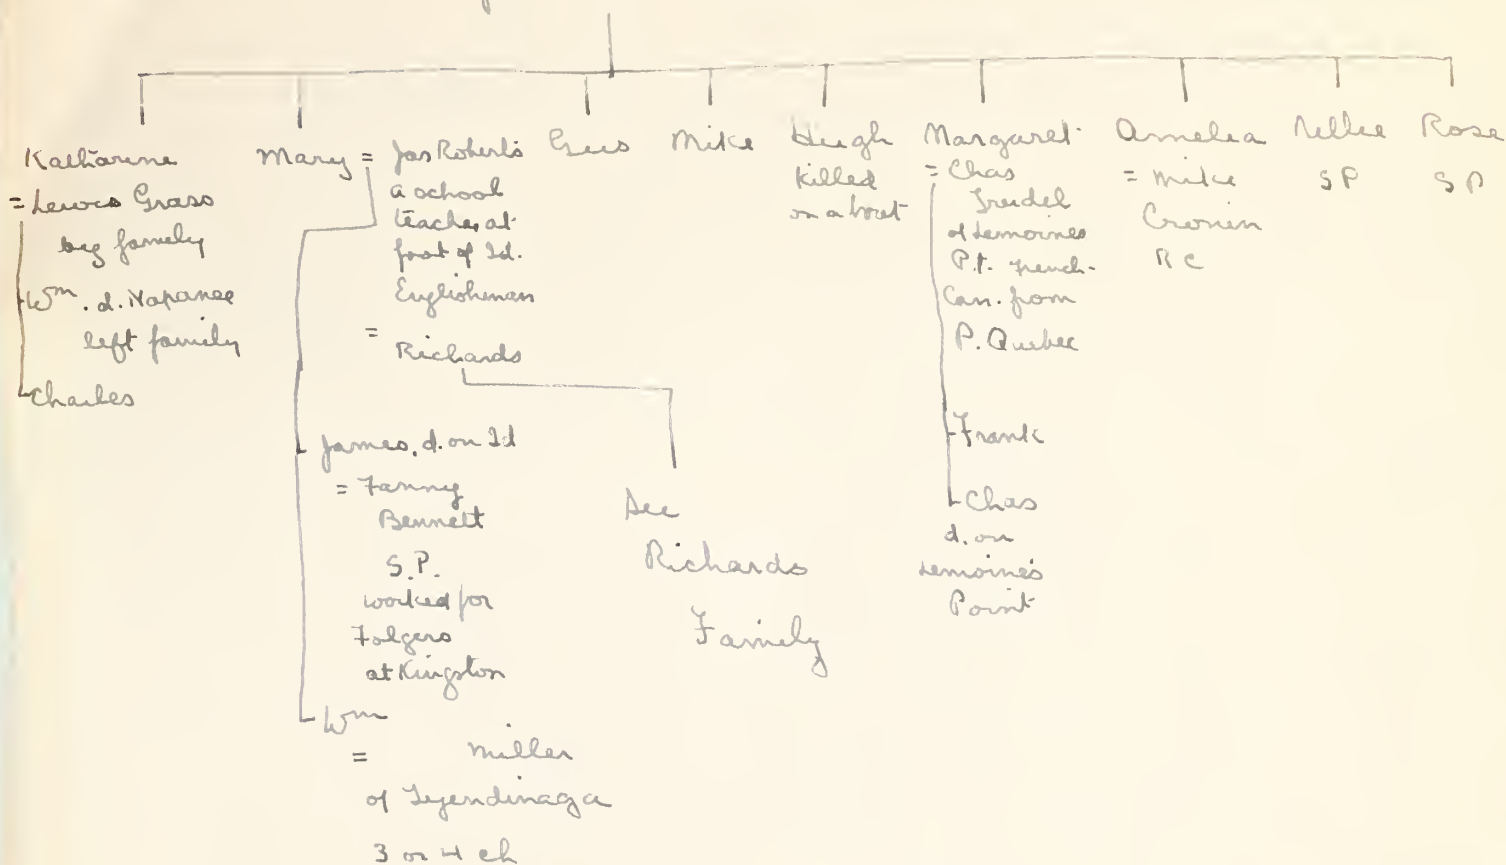 Katharine
= Lewis Grass
big family
Wm. d. Napanee
left family
Charles
Mary = Jas Roberts
a school
teacher at
foot of Id.
Englishman
= Richards
James, d. on Id
= Fanny
Bennett
S.P.
worked for
Folgers
at Kingston
Wm
= Miller
of Tyendinaga
3 or 4 ch
See
Richards
Family
Gus
Mike
Hugh
Killed
on a boat
Margaret
= Chas
Trudel
of Lemoines
Pt. French-
Can. from
P. Quebec
Frank
Chas
d. on
Lemoine's
Point
Amelia
= Mike
Cronin
RC
Nellie
SP
Rose
SP